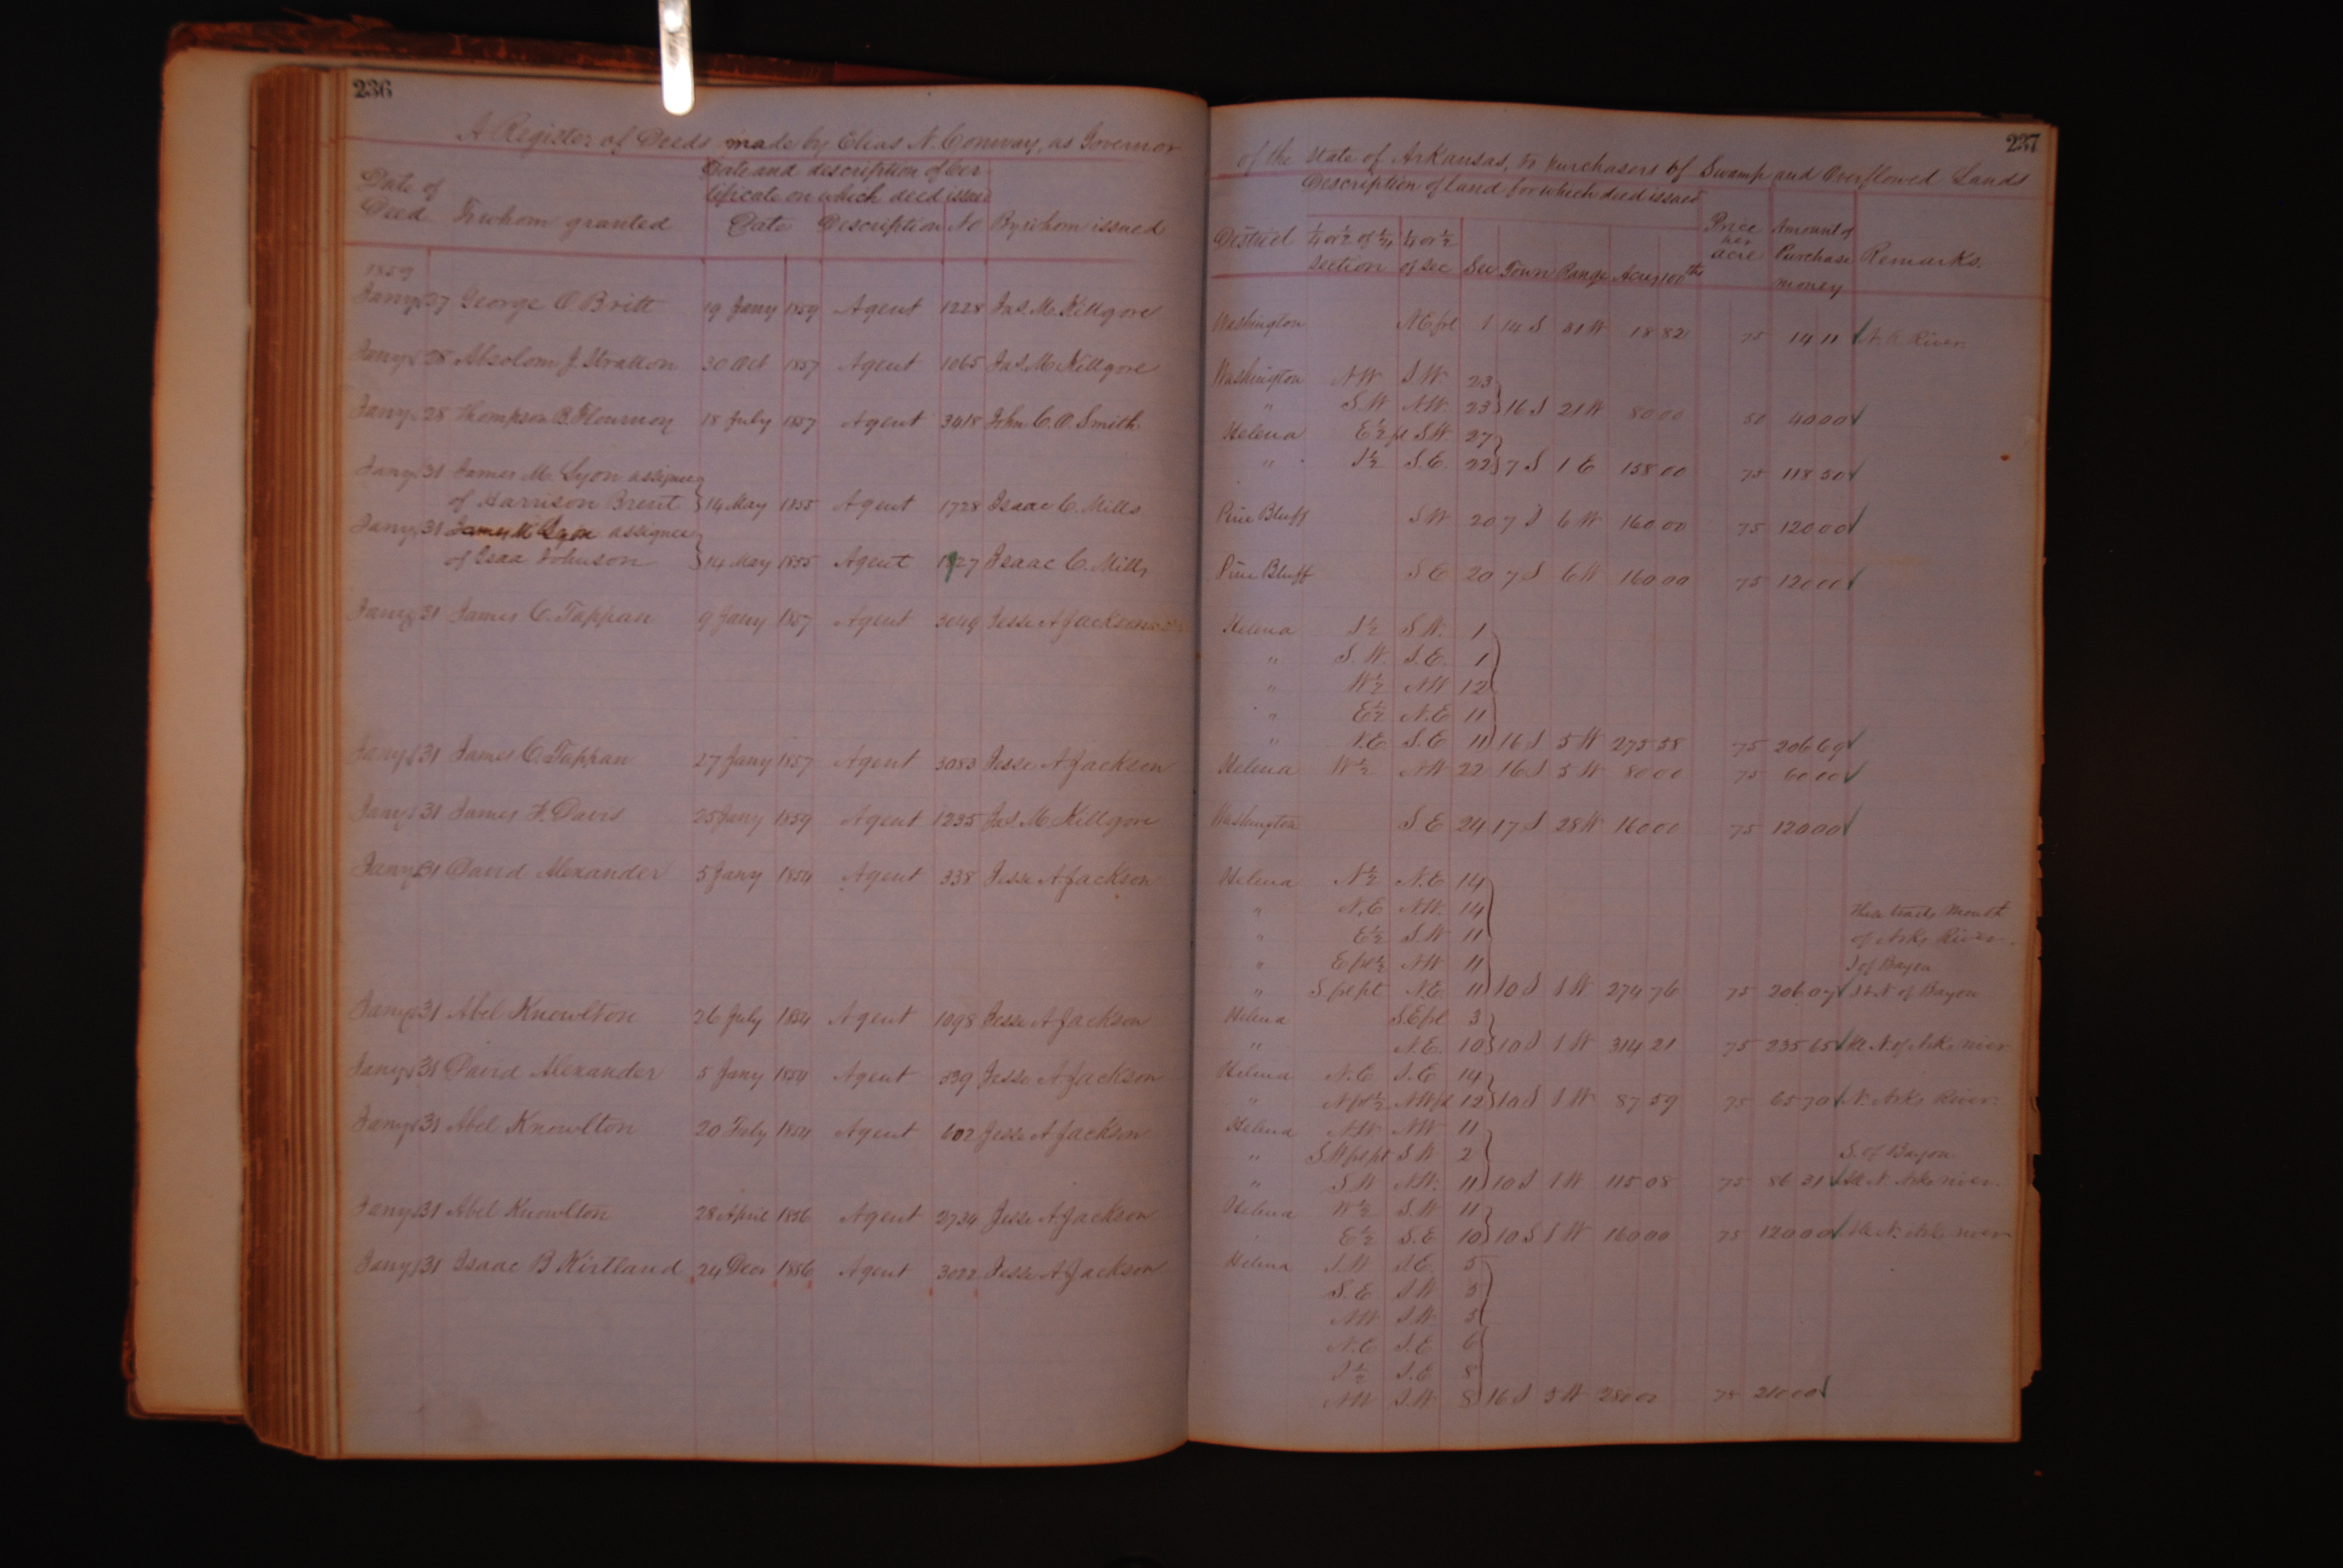 236
A Register of Deeds made by Elias N. Conway, as Governor
Date of Deed To whom granted Date and description of certificate on which deed issued
Date Description No By whom issued
1859
Jany 27 George C. Britt 19 Jany 1859 Agent 1228 Jas. M. Killgore
Jany 28 Absolom J. Stratton 30 Oct 1857 Agent 1065 Jas. M. Killgore
Jany 28 Thompson B. Flournoy 18 July 1857 Agent 3418 John C. O. Smith
Jany 31 James M. Lyon assignee
of Harrison Brent 14 May 1855 Agent 1728 Isaac C. Mills
Jany 31 James M Lyon assignee
of Isaa Johnson 14 May 1855 Agent 1727 Isaac C. Mills
Jany 31 James C. Tappan 9 Jany 1857 Agent 3049 Jesse A Jackson
Jany 31 James C. Tappan 27 Jany 1857 Agent 3083 Jesse A Jackson
Jany 31 James F. Davis 25 Jany 1859 Agent 1235 Jas M Killgore
Jany 31 David Alexander 5 Jany 1854 Agent 338 Jesse A Jackson
Jany 31 Abel Knowlton 26 July 1854 Agent 1098 Jesse A Jackson
Jany 31 David Alexander 5 Jany 1854 Agent 339 Jesse A Jackson
Jany 31 Abel Knowlton 20 1854 Agent 602 Jesse A Jackson
Jany 31 Abel Knowlton 28 April 1856 Agent 2734 Jesse A Jackson
Jany 31 Isaac B Kirtland 24 Decr 1856 Agent 3022 Jesse A Jackson
237
of the State of Arkansas, to purchasers of Swamp and Overflowed Lands
Description of land for which deed issued
District ¼ or ½ of ¼ section ¼ or ½ of sec Sec Town Range Acres 100ths Price per acre Amount of Purchase money Remarks.
Washington N.E frl 1 14 S 31 W 18 82 75 14 11 River
Washington N W S. W 23
" S. W N.W. 23 16 S 21 W 80 00 50 40 00
Helena E½ fl S W 27
" S½ S. E. 22 7 S 1 E 158 00 75 118 50
Pine Bluff S W 20 7 S 6 W 160 00 75 120 00
Pine Bluff S E 20 7 S 6 W 160 00 75 120 00
Helena S½ S. W. 1
" S. W. S. E. 1
" W½ N W 12
" E½ N. E 11
" N. E S. E 11 16 S 5 W 275 58 75 206 69
Helena W½ N W 22 16 S 5 W 80 00 75 60 00
Washington S E 24 17 S 28 W 160 00 75 120 00
Helena N½ N. E 14
" N. E N.W. 14 These tracts Mouth
" E½ S. W 11 of Arks River.
" E frl ½ N W 11 S of Bayou
" S. frl pt N. E. 11 10 S 1 W 274 76 75 206 07 N of Bayou
Helena S.E frl 3
" N. E. 10 10 S 1 W 314 21 75 235 65 N. of Arks river
Helena N. E S. E 14
" N frl ½ N W 12 10 S 1 W 87 59 75 65 70 N. Arks River.
Helena N W N W 11
" S W frl pt S W 2 S. of Bayou
" S. W N.W. 11 10 S 1 W 115 08 75 86 31 N. Arks river
Helena W½ S. W 11
E½ S. E 10 10 S 1 W 160 00 75 120 00 N. Ark river
Helena S. W S. E. 5
S. E S W 5
N W S. W 5
N. E S. E 6
S½ S. E 8
N W S. W 8 16 S 5 W 280 00 75 210 00